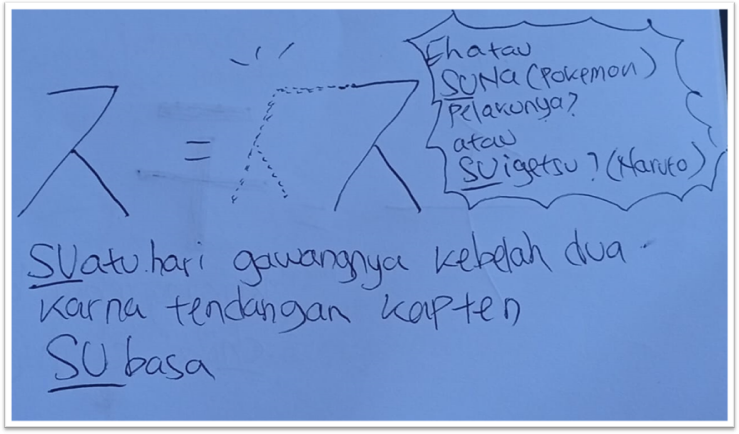 ス = ス
Eh atau
SUNa (Pokemon)
Pelakunya?
atau
SUigetsu? (Naruto)
SUatu hari gawangnya kebelah dua
karna tendangan kapten
SUbasa